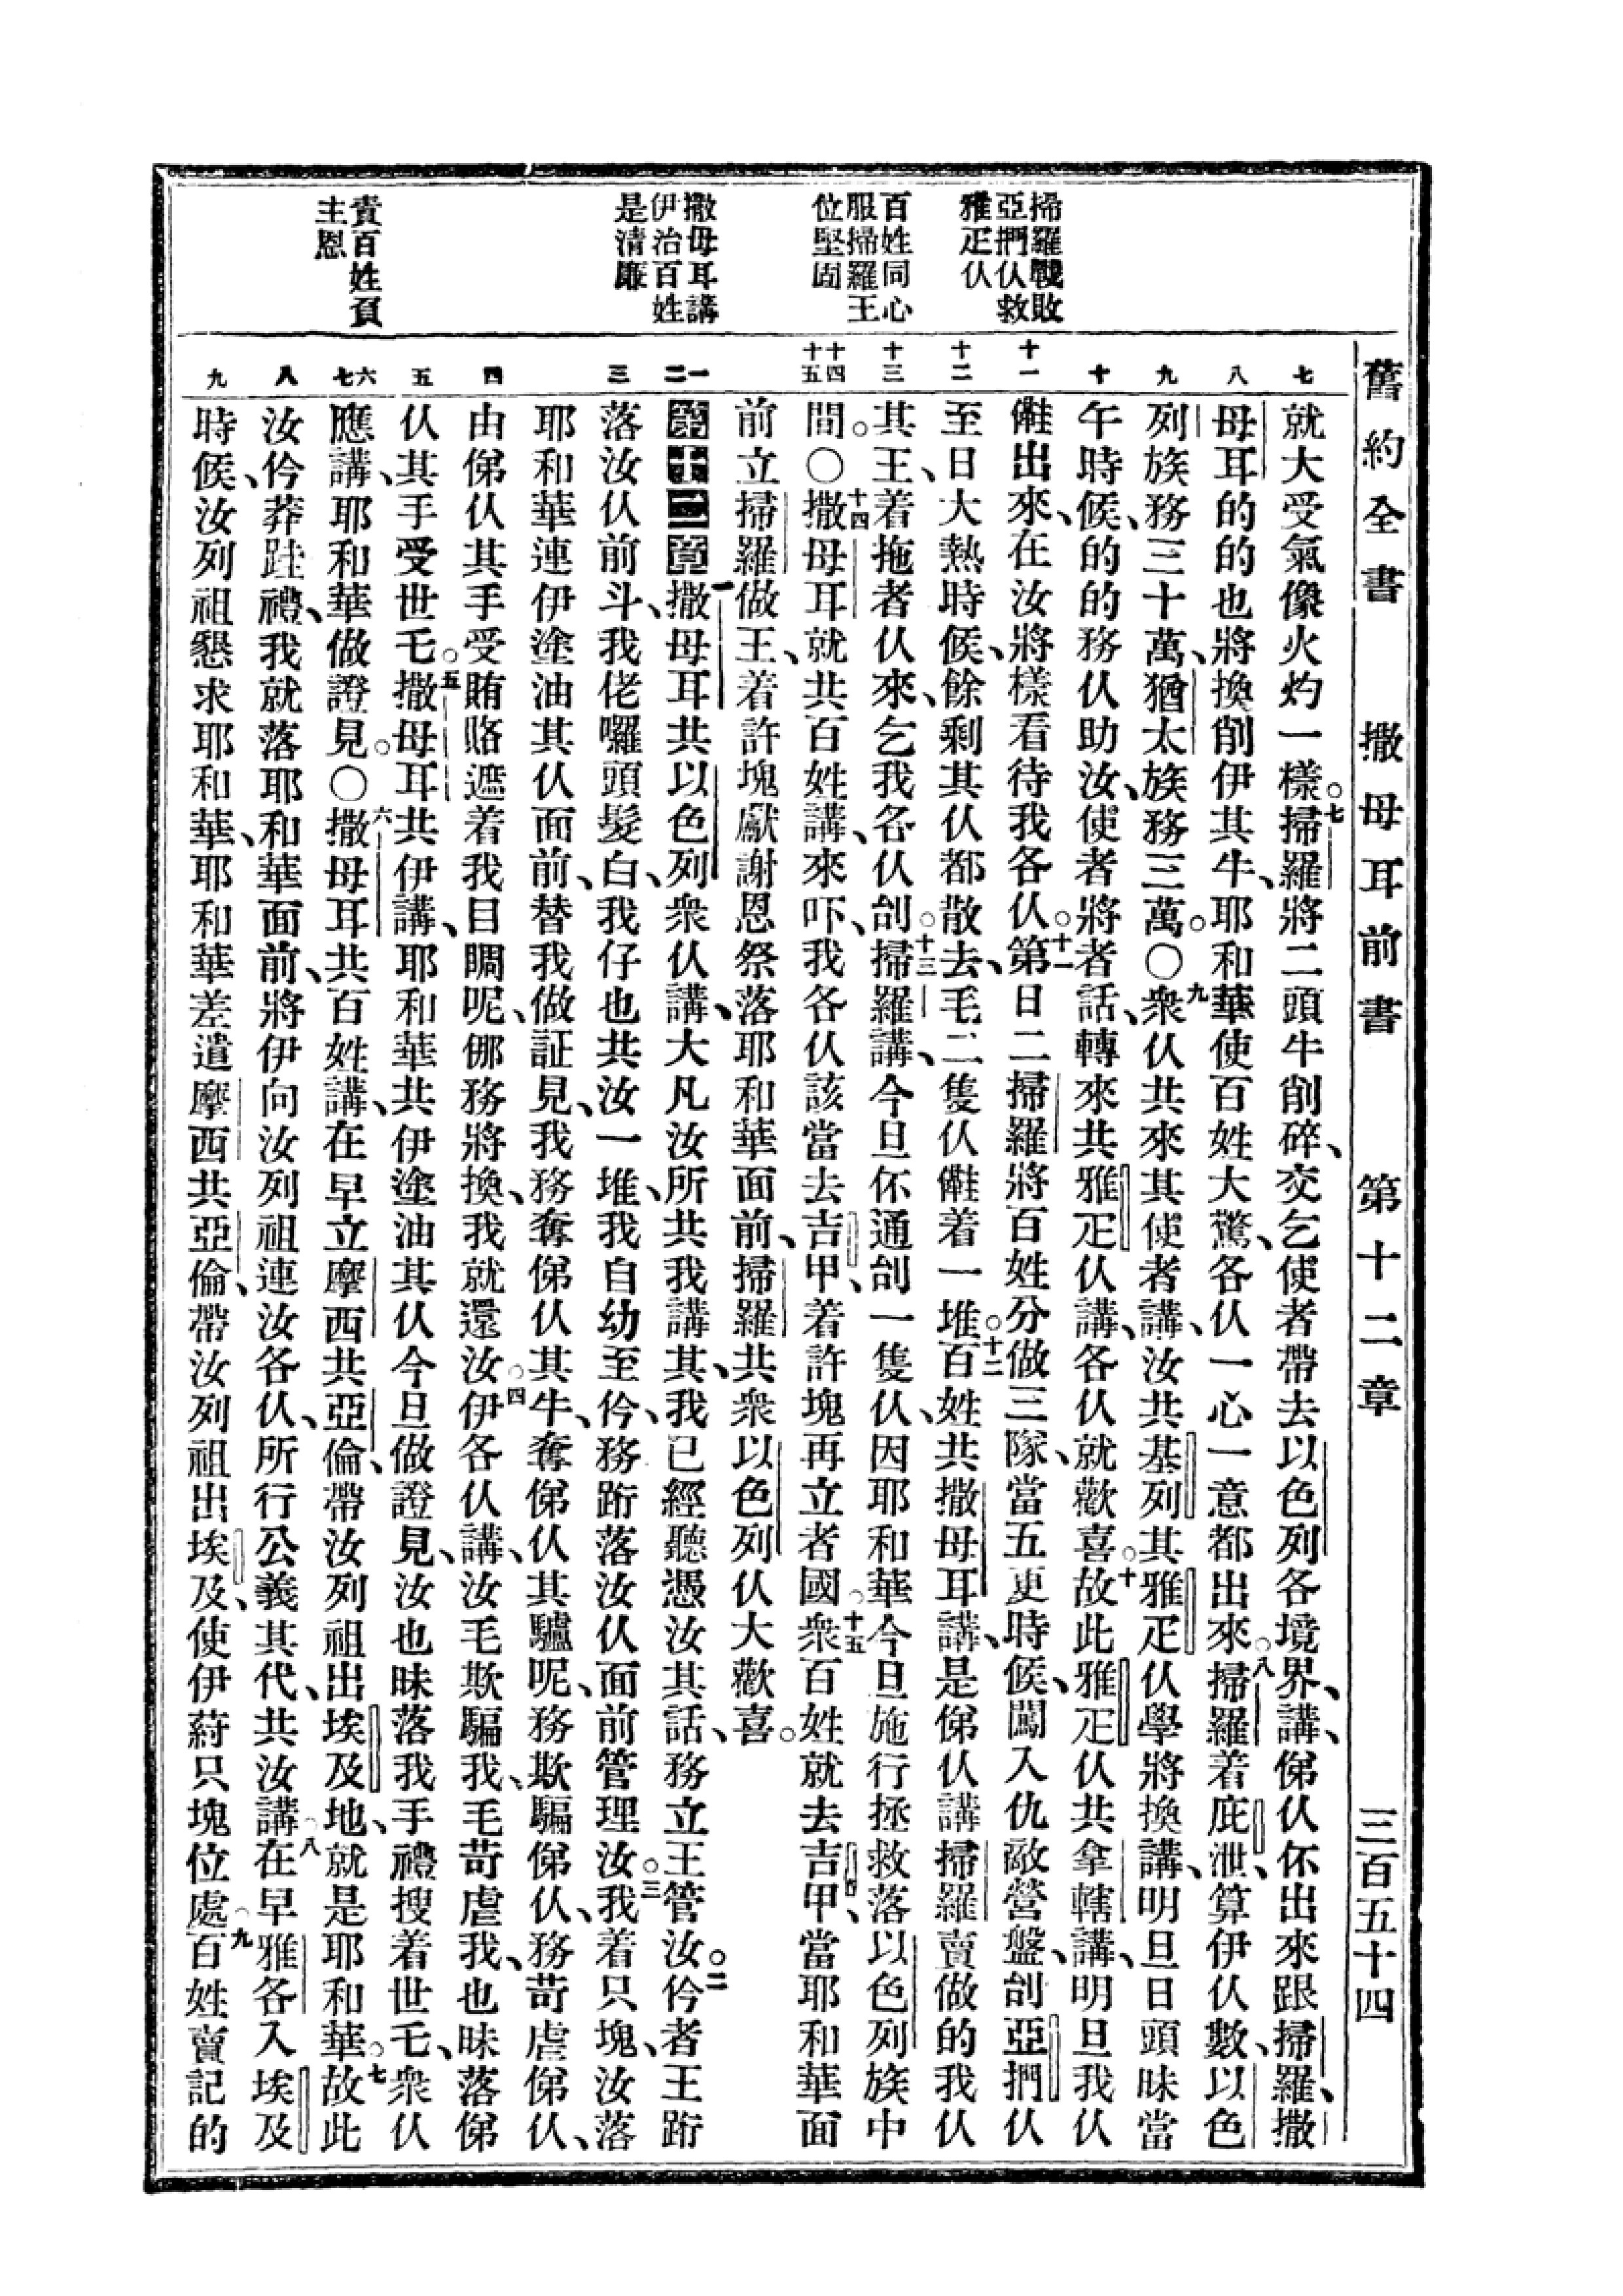 舊約全書　撒母耳前書　第十二章　三百五十四
掃羅戰敗
亞捫仫救
雅疋仫
百姓同心
服掃羅王
位堅固
撒母耳講
伊治百姓
是清廉
責百姓負
主恩
七
八
九
十
十一
十二
十三
十四
十五
一
二
三
四
五
六
七
八
九
就大受氣像火灼一樣。七掃羅將二頭牛削碎、交乞使者帶去以色列各境界、講、俤仫伓出來跟掃羅、撒
母耳的的也將換削伊其牛、耶和華使百姓大驚、各仫一心一意都出來。八掃羅着庇泄、算伊仫數、以色
列族務三十萬、猶太族務三萬。〇九衆仫共來其使者講、汝共基列其雅疋仫學將換講、明旦日頭昧當
午時候、的的務仫助汝、使者將者話、轉來共雅疋仫講、各仫就歡喜。十故此雅疋仫共拿轄講、明旦我仫
儺出來、在汝將樣看待我各仫。十一第日二掃羅將百姓分做三隊、當五更時候、闖入仇敵營盤、刣亞捫仫
至日大熱時候、餘剩其仫都散去、毛二隻仫儺着一堆。十二百姓共撒母耳講、是俤仫講掃羅賣做的我仫
其王、着拖者仫來、乞我各仫刣。十三掃羅講、今旦伓通刣一隻仫、因耶和華今旦施行拯救落以色列族中
間。〇十四撒母耳就共百姓講、來吓、我各仫該當去吉甲、着許塊再立者國。十五衆百姓就去吉甲、當耶和華面
前立掃羅做王、着許塊獻謝恩祭落耶和華面前、掃羅共衆以色列仫大歡喜。
第十二章一撒母耳共以色列衆仫講、大凡汝所共我講其、我已經聽憑汝其話、務立王管汝。二仱者王跨
落汝仫前斗、我佬囉頭髮白、我仔也共汝一堆、我自幼至仱、務跨落汝仫面前管理汝。三我着只塊、汝落
耶和華連伊塗油其仫面前、替我做証見、我務奪俤仫其牛、奪俤仫其驢呢、務欺騙俤仫、務苛虐俤仫、
由俤仫其手受賄賂遮着我目睭呢、倻務將換、我就還汝。四伊各仫講、汝毛欺騙我、毛苛虐我、也昧落俤
仫其手受世乇。五撒母耳共伊講、耶和華共伊塗油其仫今旦做證見、汝也昧落我手禮搜着世乇、衆仫
應講、耶和華做證見。〇六撒母耳共百姓講、在早立摩西共亞倫、帶汝列祖出埃及地、就是耶和華。七故此
汝仱莽跬禮、我就落耶和華面前、將伊向汝列祖連汝各仫、所行公義其代、共汝講。八在早雅各入埃及
時候、汝列祖懇求耶和華、耶和華差遣摩西共亞倫、帶汝列祖出埃及、使伊葤只塊位處。九百姓賣記的